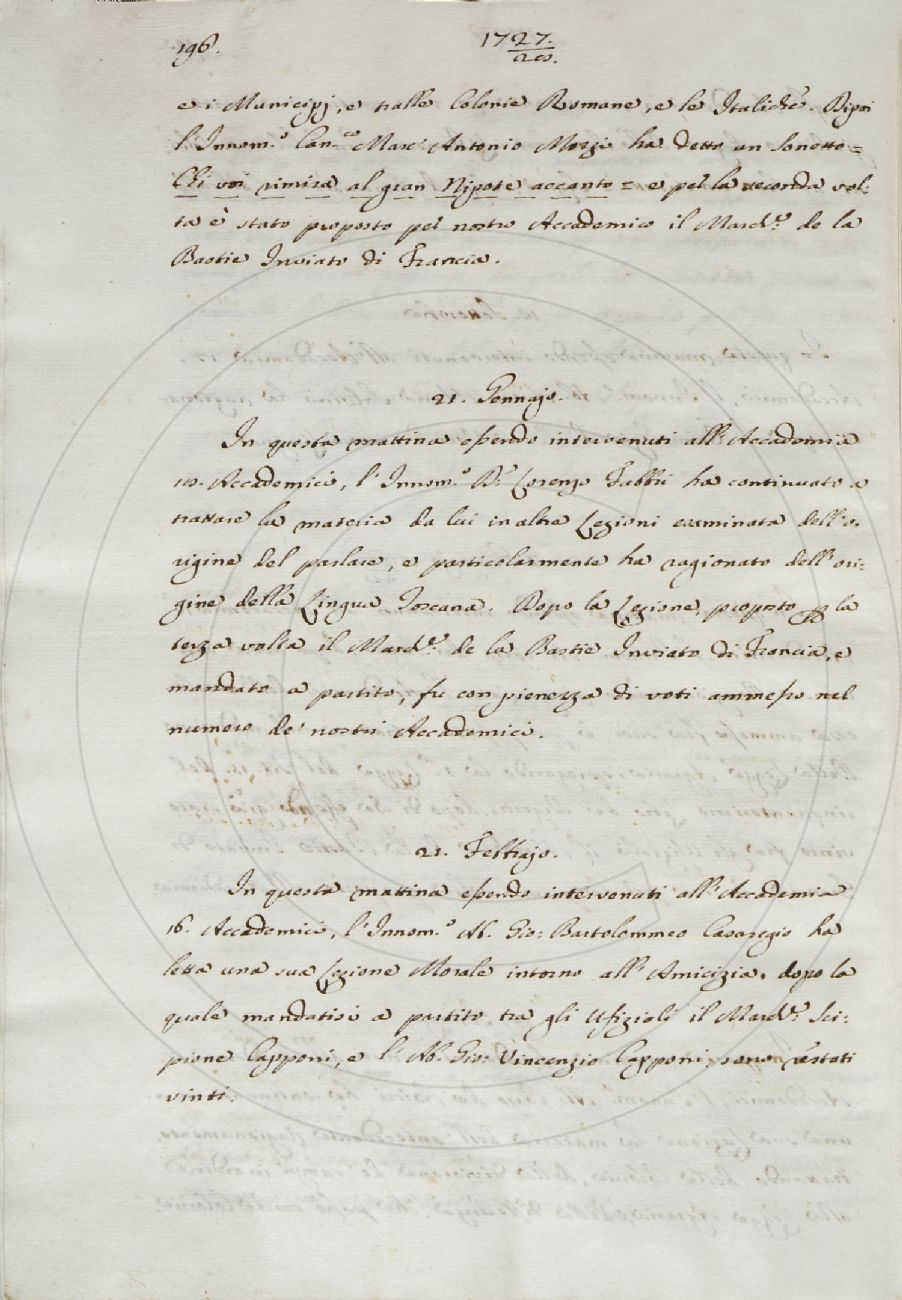 196.
1727.
28.
e i Municipj, e tralle Colonie Romane, e le Italiche. Dipoi
l'Innom.º Can.co Marc'Antonio Mozzi ha detto un Sonetto =
Chi voi rimira al gran Nipote accanto = e per la seconda vol:
ta è stato proposto per nostro Accademico il March.e de la
Bastie Inviato di Francia.
21. Gennajo.
In questa mattina essendo intervenuti all'Accademia
10. Accademici, l'Innom.º D.r Lorenzo Fabbri ha continuato a
trattare la materia da lui in altre Lezioni esaminata dell'o:
rigine del parlare, e particolarmente ha ragionato dell'ori:
gine della Lingua Toscana. Dopo la Lezione, proposto per la
terza volta il March.e de la Bastie Inviato di Francia, e
mandato a partito, fu con pienezza di voti ammesso nel
numero de' nostri Accademici.
21. Febbrajo.
In questa mattina essendo intervenuti all'Accademia
16. Accademici, l'Innom.º Ab. Gio: Bartolommeo Casaregio ha
letta una sua Lezione Morale intorno all'Amicizia, dopo la
quale mandatisi a partito tra gli Ufiziali il March.e Sci:
pione Capponi, e l'Ab. Gio: Vincenzio Capponi, sono restati
vinti.